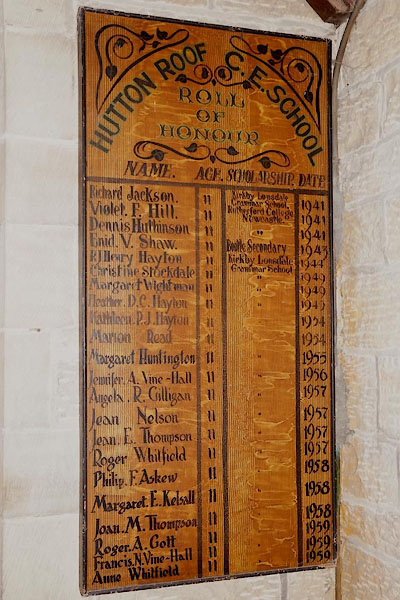 HUTTON ROOF C.E. SCHOOL
ROLL
OF
HONOUR
NAME. AGE. SCHOLARSHIP. DATE
Richard Jackson. 11 Kirkby Lonsdale Grammar School. 1941
Violet. E. Hill. 11 Rutherford College Newcastle 1941
Dennis Hutchinson 11 " 1941
Enid. V. Shaw. 11 Bootle Secondary 1943
R.J. Henry Hayton 11 Kirkby Lonsdale Grammar School 1944
Christine Stockdale 11 " 1949
Margaret Wightman 11 " 1949
Heather. D.C. Hayton 11 " 1949
Kathleen. P.J. Hayton 11 " 1954
Marion Read 11 " 1954
Margaret Huntington 11 " 1955
Jennifer. A. Vine-Hall 11 " 1956
Angela. R. Gilligan 11 " 1957
Jean Nelson 11 " 1957
Jean. E. Thompson 11 " 1957
Roger Whitfield 11 " 1957
Philip. F. Askew 11 " 1958
Margaret. E. Kelsall 11 " 1958
Joan. M. Thompson 11 " 1958
Roger. A. Gott 11 " 1959
Francis. N. Vine-Hall 11 " 1959
Anne Whitfield 11 " 1959